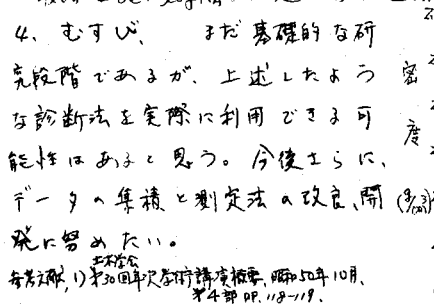 4. むすび、 まだ基礎的な研
究段階であるが、上述したよう
な診断法を実際に利用できる可
能性はあると思う。今後さらに、
データの集積と測定法の改良、開
発に努めたい。
参考文献、1) 土木学会第30回年次学術講演概要、昭和50年10月、
第4部 PP. 118~119.
密度